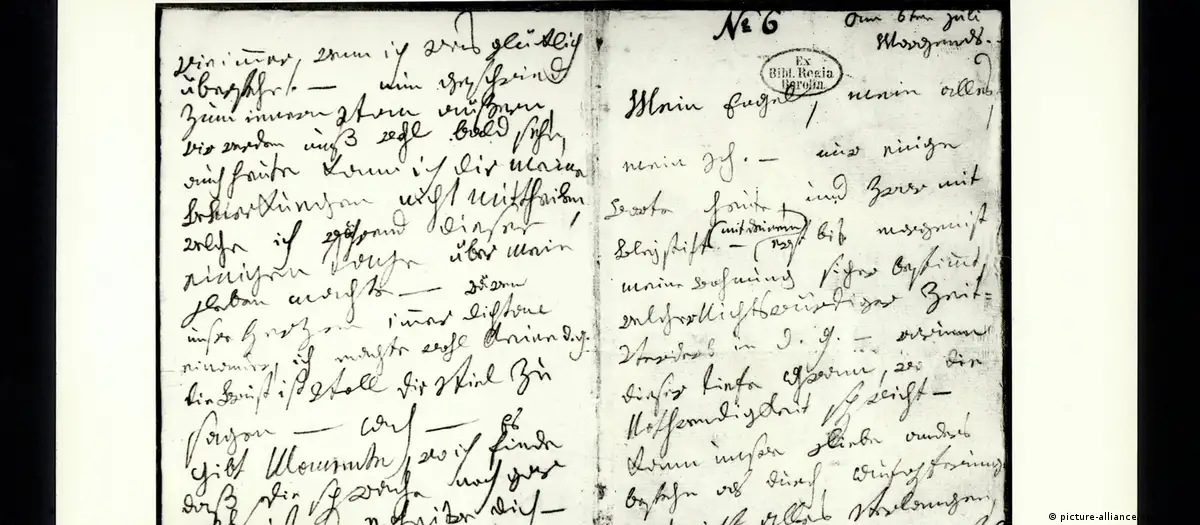 wie immer, wenn ich was glücklich
überstehe. — nun geschwind
zum innern vom aüßern,
wir werden unß wohl bald sehn,
auch heute kann ich dir meine
Bemerkungen nicht mittheilen,
welche ich während dieser
einigen Tage über mein
Leben machte — wären
unsre Herzen immer dicht an
einander, ich machte wohl keine d.g.
die Brust ist voll dir viel zu
sagen — Ach — es
gibt Momente, wo ich finde
daß die sprache noch gar
dich —
No 6
Am 6ten Juli
Morgends. —
Ex
Bibl. Regia
Berolin.
Mein Engel, mein alles,
mein Ich. — nur einige
Worte heute, und zwar mit
Bleystift — (mit deinem) erst bis morgen ist
meine Wohnung sicher bestimmt,
welcher Nichtswürdiger Zeit-
Verderb in d. g. — warum
dieser tiefe Gram, wo die
Nothwendigkeit spricht —
Kann unsre Liebe anders
bestehn als durch Aufopferungen,
alles verlangen,
© picture-alliance